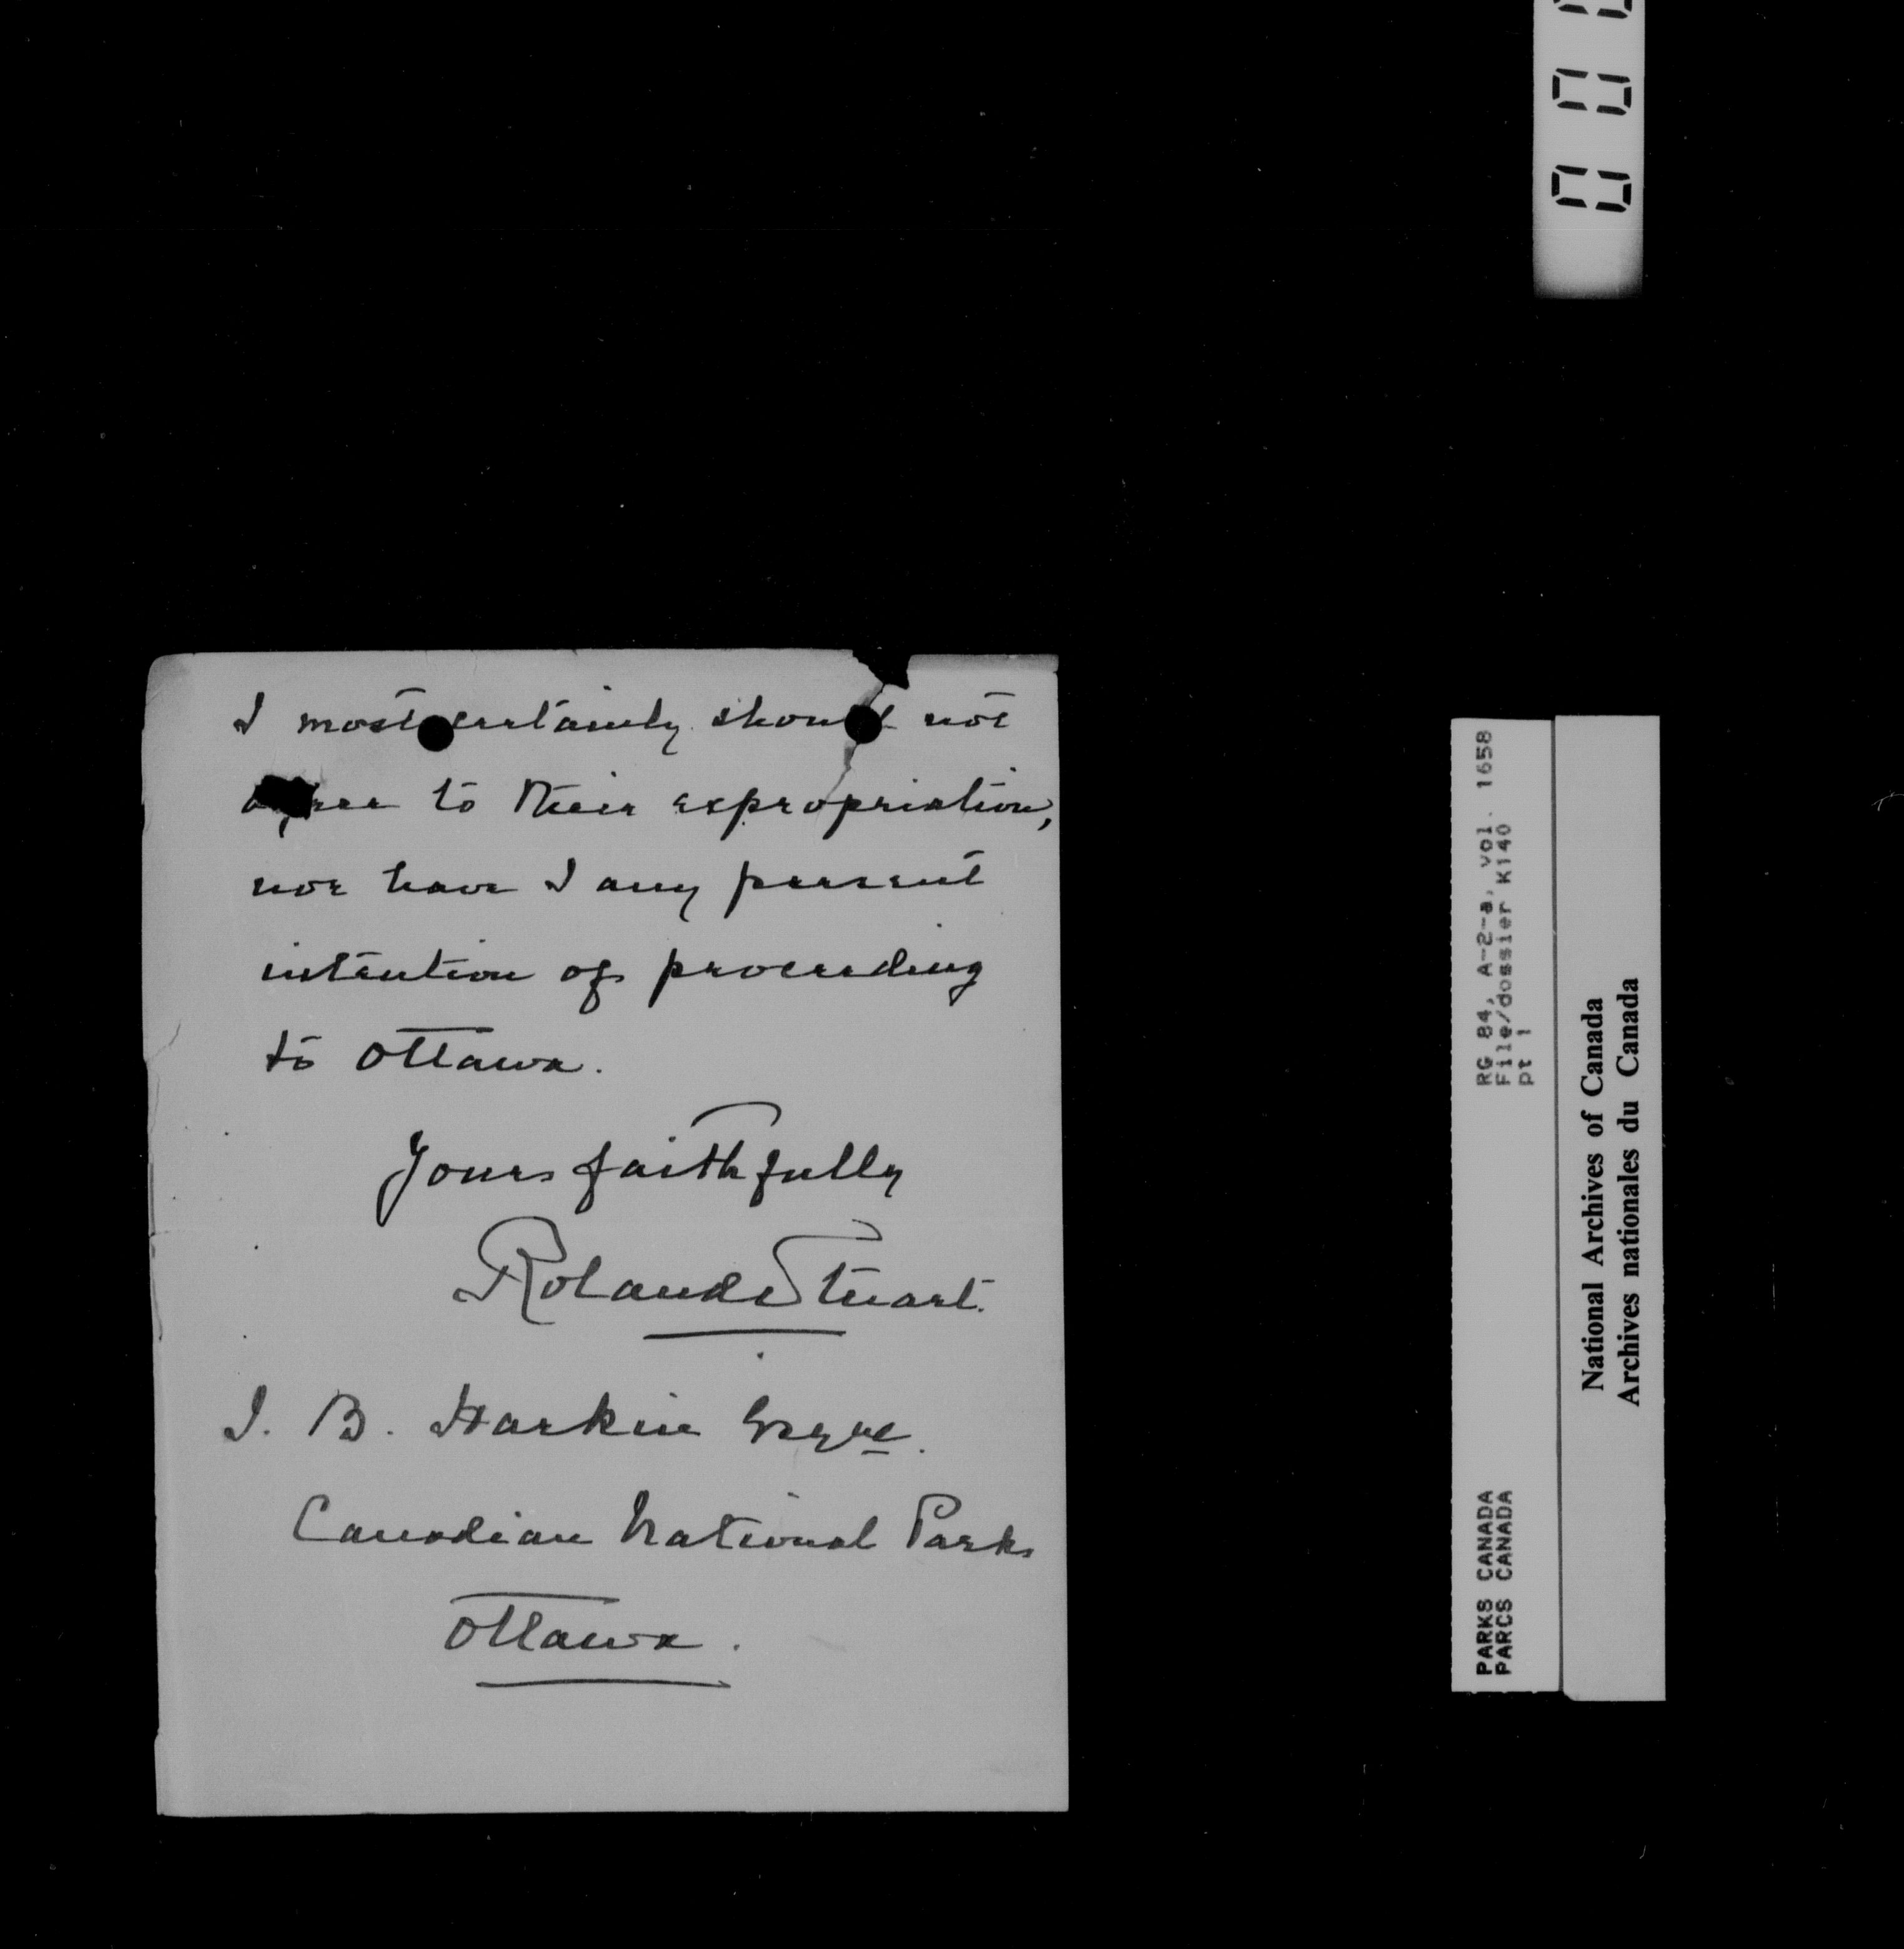 I most certainly should not
agree to their expropriation,
nor have I any present
intention of proceeding
to Ottawa.
Yours faithfully
Roland Stuart.
J. B. Harkin Esqre.
Canadian National Parks
Ottawa.
PARKS CANADA RG 84, A-2-a, vol. 1658
PARCS CANADA File/dossier K140
pt 1
National Archives of Canada
Archives nationales du Canada